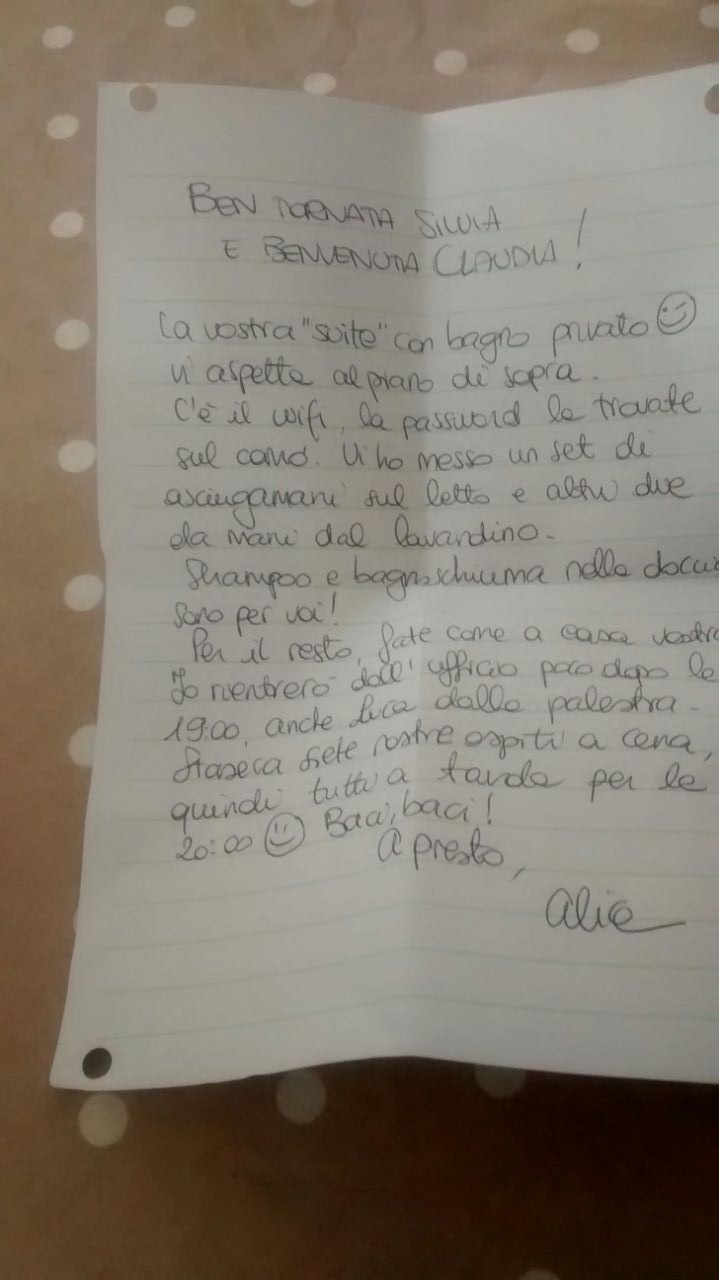 BEN TORNATA SILVIA
E BENVENUTA CLAUDIA!
La vostra "suite" con bagno privato
vi aspetta al piano di sopra.
C'è il wifi, la password la trovate
sul comò. Vi ho messo un set di
asciugamani sul letto e altri due
da mani dal lavandino.
Shampoo e bagnoschiuma nella doccia
sono per voi!
Per il resto, fate come a casa vostra
Io rientrerò dall'ufficio poco dopo le
19:00, anche Luca dalla palestra.
Stasera siete nostre ospiti a cena,
quindi tutti a tavola per le
20:00 Baci, baci!
A presto,
Alice